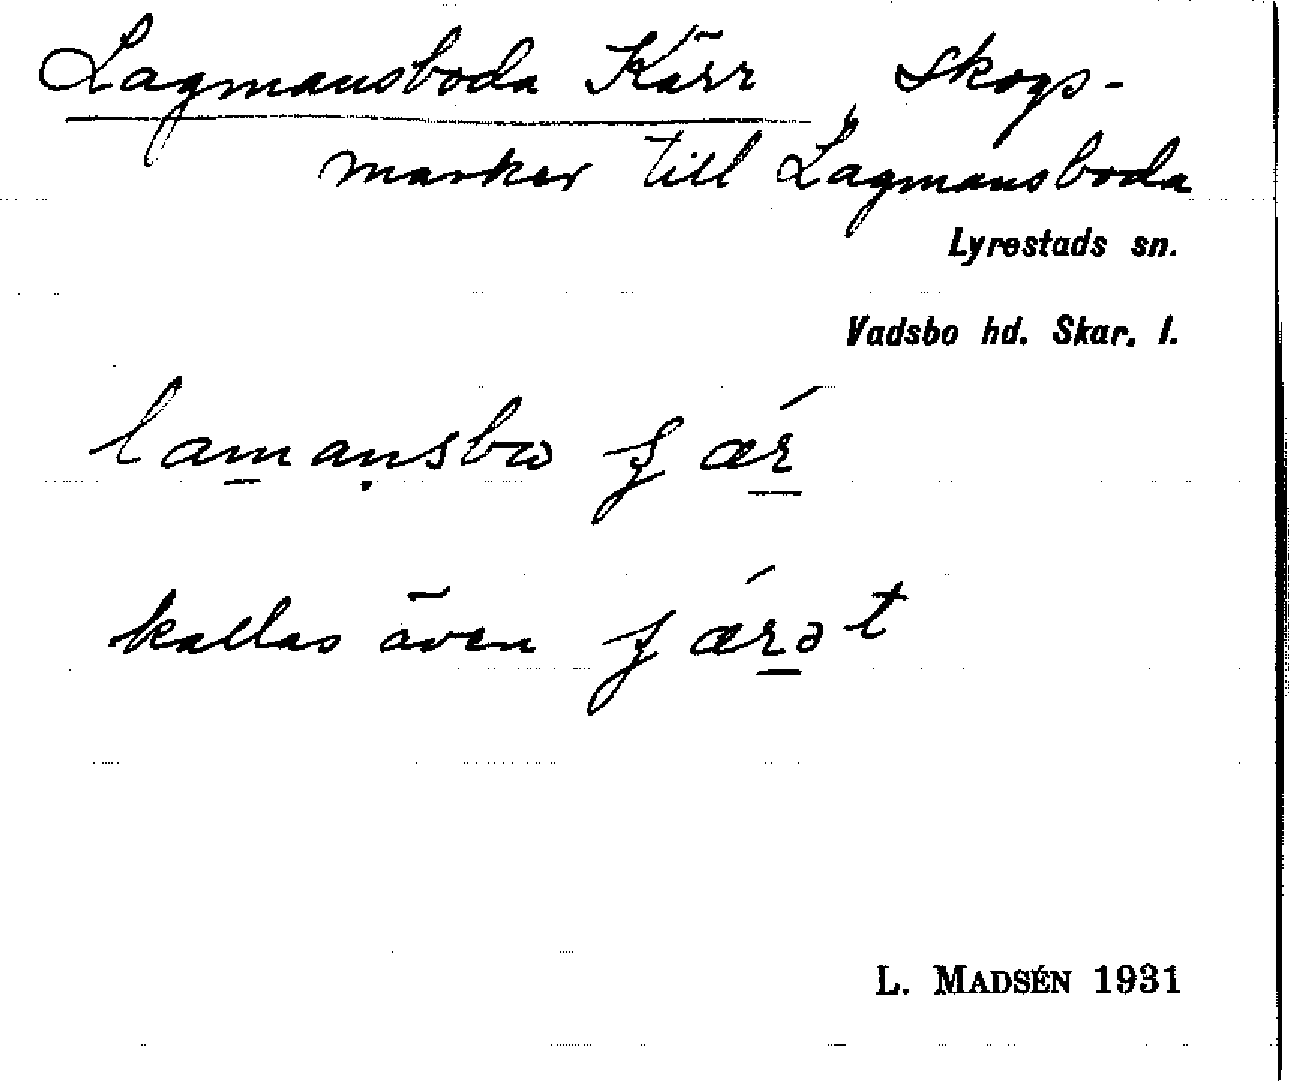 Lagmansboda Kärr, Skogs-
marker till Lagmansboda
Lyrestads sn.
Vadsbo hd. Skar. l.
lamạnsbω ʂæŕ
kallas även ʂǽrət
L. MADSÉN 1931